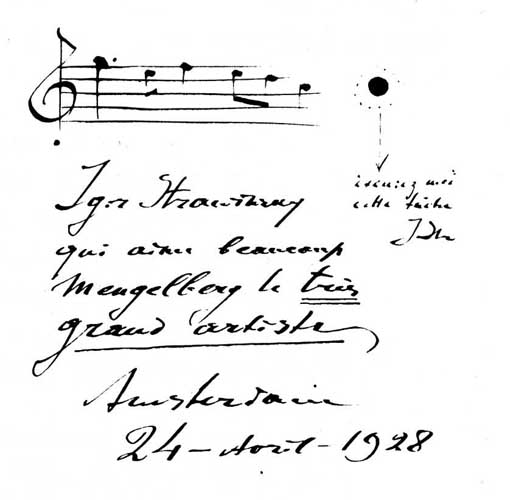 Igor Strawinsky
qui aime beaucoup
Mengelberg le très
grand artiste
Amsterdam
24 – Avril – 1928
excusez moi
cette tache